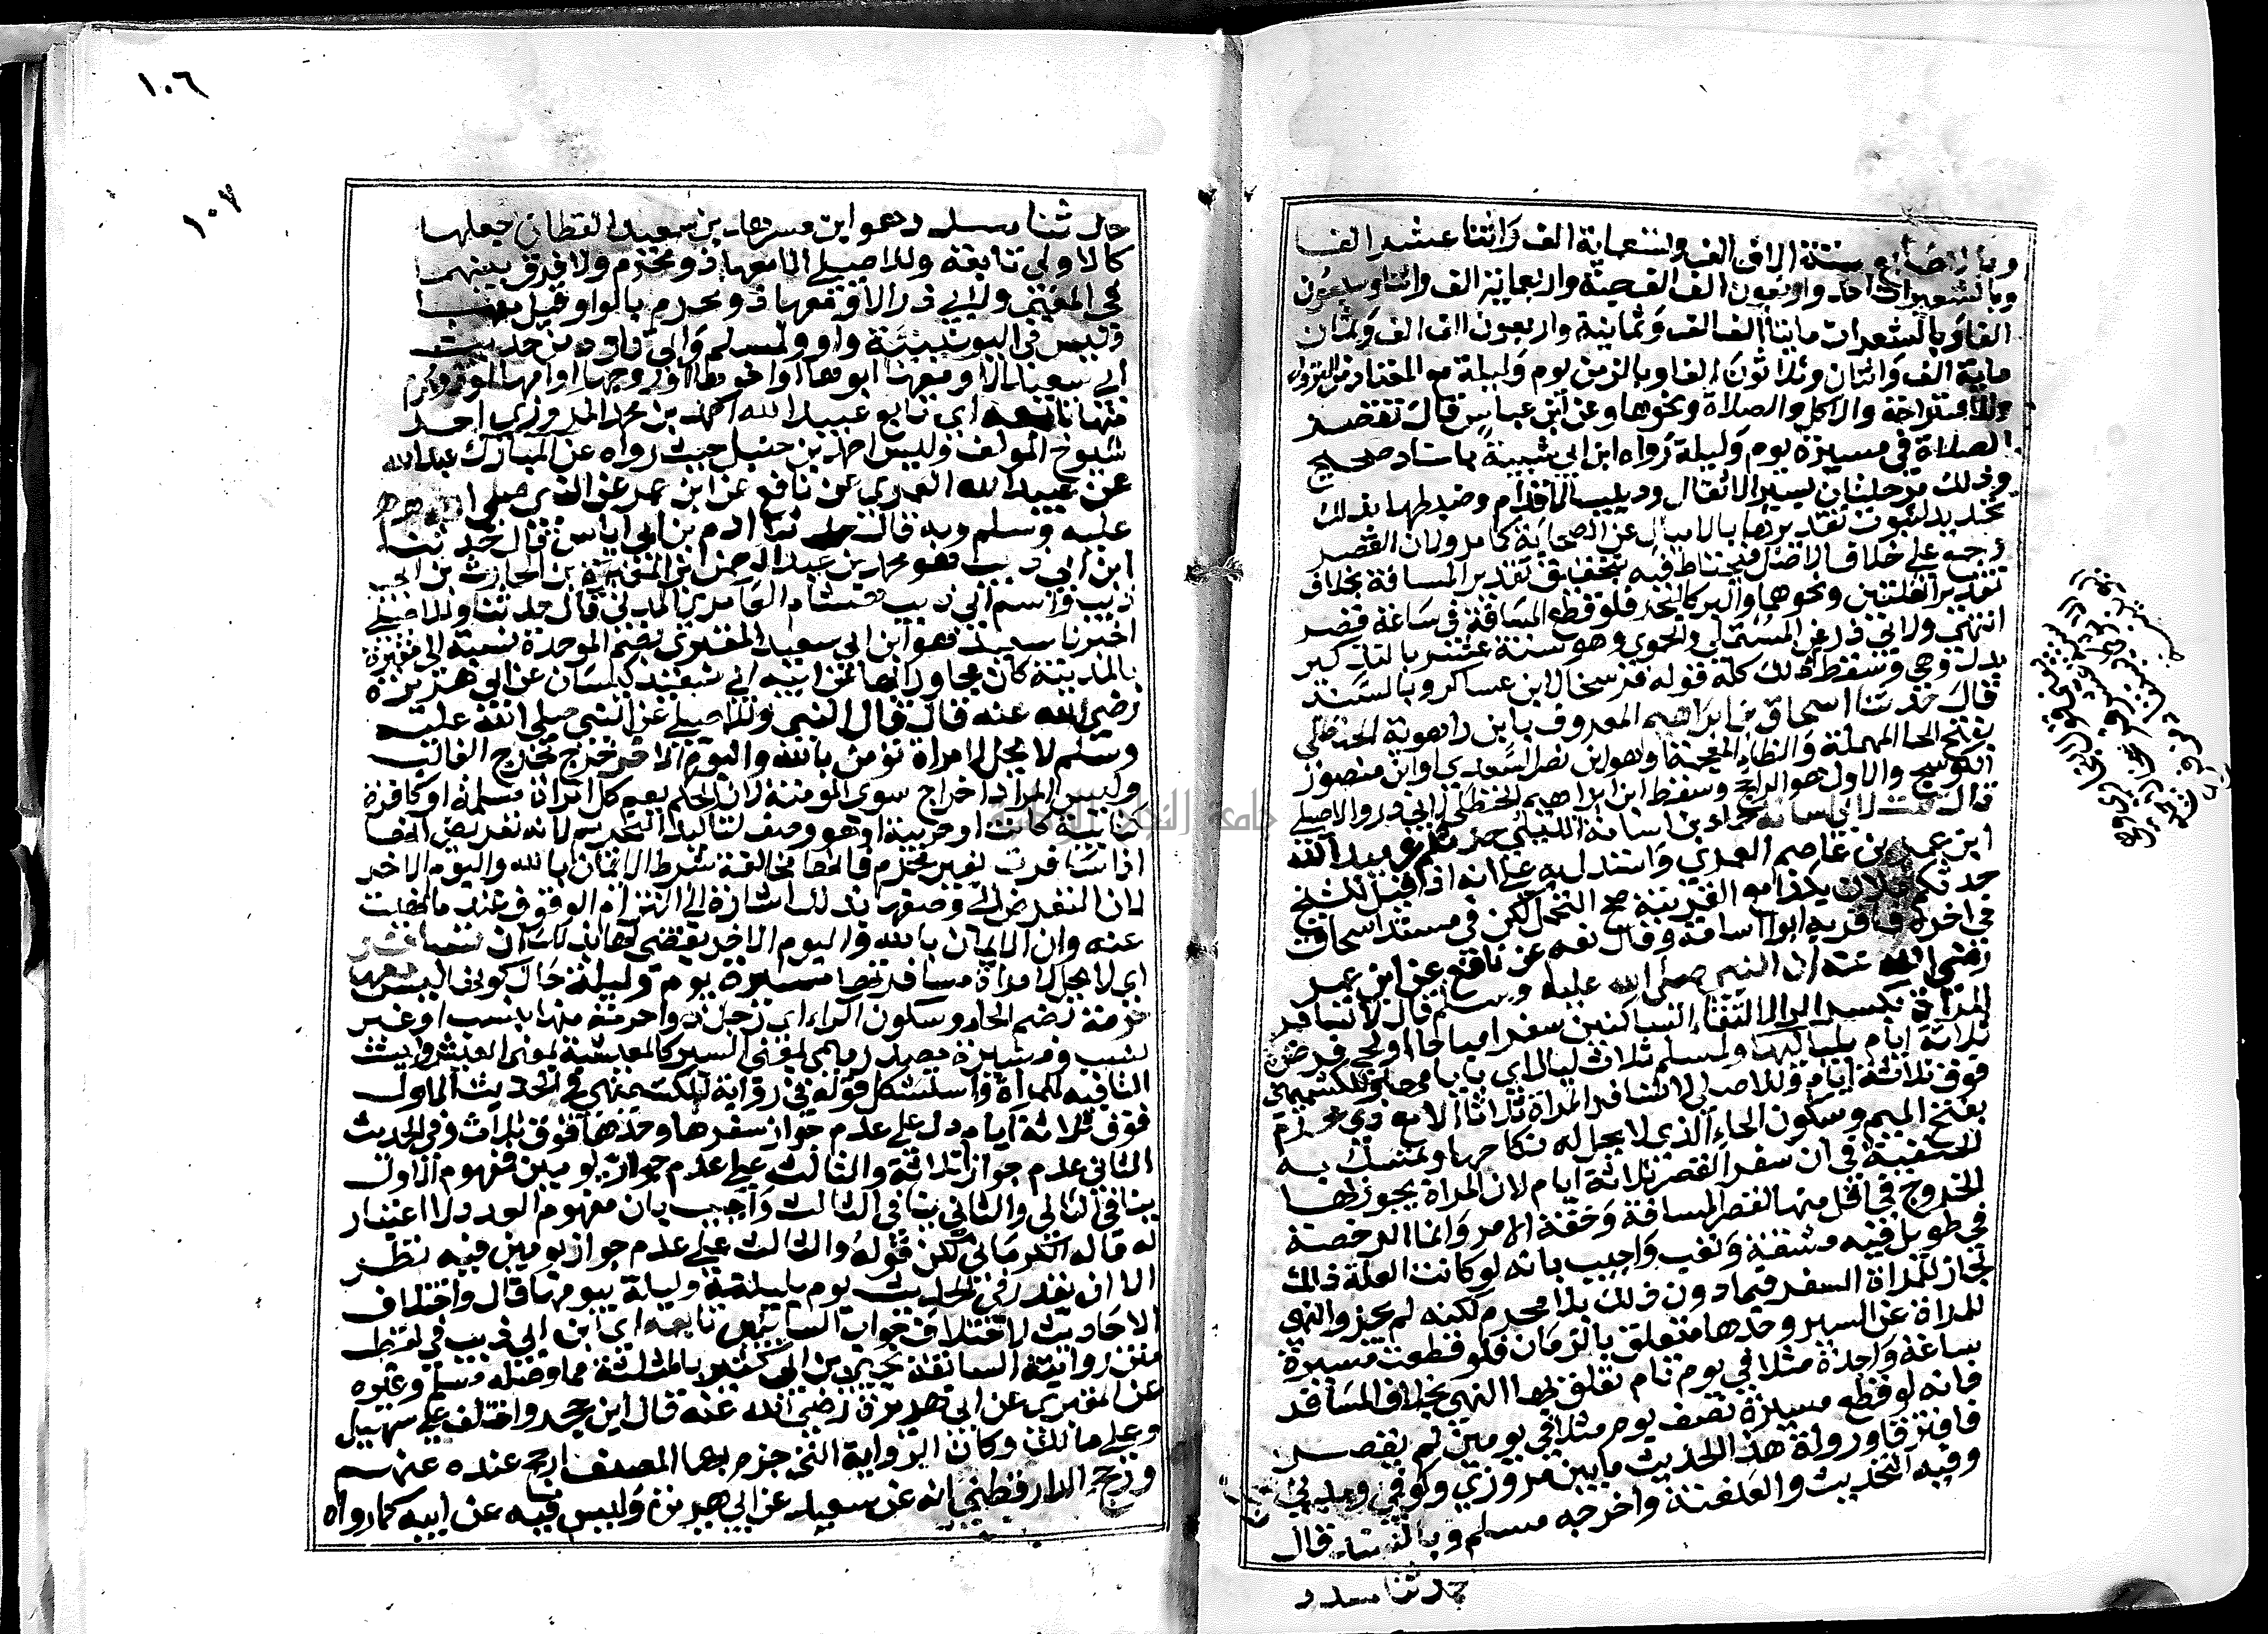 وبالاصابع ستة الاف الف وتسعماية الف واثنا عشر الف
وبالشعيرات احد واربعون الف الف حبة واربعماية الف واثنا وسبعون
الفا وبالشعرات مايتا الف الف وثمانية واربعون الف الف وثمان
ماية الف واثنان وثلاثون الفا وبالزمن يوم وليلة مع المعتاد من النزول
والاستراحة والاكل والصلاة ونحوها وعن ابن عباس قال تقصر
الصلاة في مسيرة يوم وليلة رواه ابن ابي شيبة باسناد صحيح
وذلك مرحلتان بسير الاثقال ودبيب الاقدام وضبطها بذلك
تحديد لثبوت تقديرها بالاميال عن الصحابة كما مر ولان القصر
على خلاف الاصل فيحتاط فيه بتحقيق تقدير المسافة بخلاف
تقدير القلتين ونحوهما والبر كالبحر فلو قطع المسافة في ساعة قصر
انتهى ولابي ذر عن المستملي والحموي وهو ستة عشر بالتذكير
بدل وهي وسقط ذلك كله قوله فرسخا لابن عساكر وبالسند
قال حدثنا اسحاق بن ابراهيم المعروف بابن راهوية الحنظلي
بفتح الحا المهملة والظا المعجمة او هو ابن نصر السعدي او ابن منصور
الكوسج والاول هو الراجح وسقط ابن ابراهيم الحنظلي لابي ذر والاصيلي
قال قلت لابي اسامة حماد بن اسامة الليثي حدثكم عبيد الله
ابن عمر بن عاصم العمري واستدل به على انه اذا قيل للشيخ
حدثكم فلان بكذا مع القرينة صح التحمل لكن في مسند اسحاق
في اخره فاقر به ابو اسامة وقال نعم عن نافع عن ابن عمر
رضي الله عنه ان النبي صلى الله عليه وسلم قال لا تسافر
المراة بكسر الرا لالتقاء الساكنين سفرا مباحا او لحج فرض
ثلاثة ايام بلياليها ولمسلم ثلاث ليال اي بايامها وللكشميهني
فوق ثلاثة ايام وللاصيلي لا تسافر المراة ثلاثا الا مع ذي محرم
بفتح الميم وسكون الحاء الذي لا يحل له نكاحها وتمسك به
الحنفية في ان سفر القصر ثلاثة ايام لان المراة يجوز لها
الخروج في اقل منها لقصر المسافة وخفة الامر وانما الرخصة
في طويل فيه مشقة وتعب واجيب بانه لو كانت العلة ذلك
لجاز للمراة السفر فيما دون ذلك بلا محرم لكنه لم يجز والنهي
للمراة عن السير وحدها متعلق بالزمان فلو قطعت مسيرة
ساعة واحدة مثلا في يوم تام تعلق بها النهي بخلاف المسافر
فانه لو قطع مسيرة نصف يوم مثلا في يومين لم يقصر
فافترقا ورواة هذا الحديث ما بين مروزي وكوفي ومدني
وفيه التحديث والعنعنة واخرجه مسلم وبالسند قال
حدثنا مسدد
١٠٦
١٠٧
حدثنا مسدد هو ابن مسرهد بن سعيد القطان جعلها
كالاولى تابعة وللاصيلي الا معها ذو محرم ولا فرق بينهما
في المعنى ولابي ذر الا ومعها ذو محرم بالواو قبل معها
وليس في اليونينية واو ولمسلم وابي داود من حديث
ابي سعيد الا ومعها ابوها او اخوها او زوجها او ابنها او ذو محرم
منها تابعه اي تابع عبيد الله احمد بن محمد المروزي احد
شيوخ المولف وليس احمد بن حنبل حيث رواه عن المبارك عبد الله
عن عبيد الله العمري عن نافع عن ابن عمر عن النبي صلى الله
عليه وسلم وبه قال حدثنا ادم بن ابي اياس قال حدثنا
ابن ابي ذيب هو محمد بن عبد الرحمن ابن المغيرة بن الحارث بن ابي
ذيب واسم ابي ذيب هشام العامري المدني قال حدثنا وللاصيلي
اخبرنا سعيد هو ابن ابي سعيد المقبري بضم الموحدة نسبة الى مقبرة
بالمدينة كان مجاورا بها عن ابيه ابي سعيد كيسان عن ابي هريرة
رضي الله عنه قال قال النبي وللاصيلي عن النبي صلى الله عليه
وسلم لا يحل لامراة تومن بالله واليوم الاخر خرج مخرج الغالب
وليس المراد اخراج سوى المومنة لان الحكم يعم كل امراة مسلمة او كافرة
كتابية كانت او حربية او هو وصف لتاكيد التحريم لانه تعريض انها
اذا سافرت بغير محرم فانها مخالفة شرط الايمان بالله واليوم الاخر
لان التعرض الى وصفها بذلك اشارة الى التزام الوقوف عند ما نهيت
عنه وان الايمان بالله واليوم الاخر يقضي لها بذلك ان تسافر
اي لا يحل لامراة مسافرتها مسيرة يوم وليلة حال كونها ليس معها
حرمة بضم الحاء وسكون الراء اي رجل ذو حرمة منها بنسب او غير
نسب ومسيرة مصدر ميمي بمعنى السير كالمعيشة بمعنى العيش وليث
التا فيه للمراة واستشكل قوله في رواية الكشميهني في الحديث الاول
فوق ثلاثة ايام دل على عدم جواز سفرها وحدها فوق ثلاث وفي الحديث
الثاني عدم جواز ثلاثة والثالث على عدم جواز يومين فمفهوم الاول
ينافي الثاني والثاني ينافي الثالث واجيب بان مفهوم العدد لا اعتبار
له قاله الكرماني لكن قوله والثالث على عدم جواز يومين فيه نظر
الا ان يقدر في الحديث يوم بليلته وليلة بيومها قال واختلاف
الاحاديث لاختلاف جواب السايلين تابعه اي ابن ابي ذيب في لفظ
متن روايته السابقة يحيى بن ابي كثير بالمثلثة مما وصله مسلم وغيره
عن المقبري عن ابي هريرة رضي الله عنه قال ابن حجر واختلف على سهيل
وعلى مالك وكان الرواية التي جزم بها المصنف ارجح عنده عنهم
ورجح الدارقطني انه عن سعيد عن ابي هريرة وليس فيه عن ابيه كما رواه